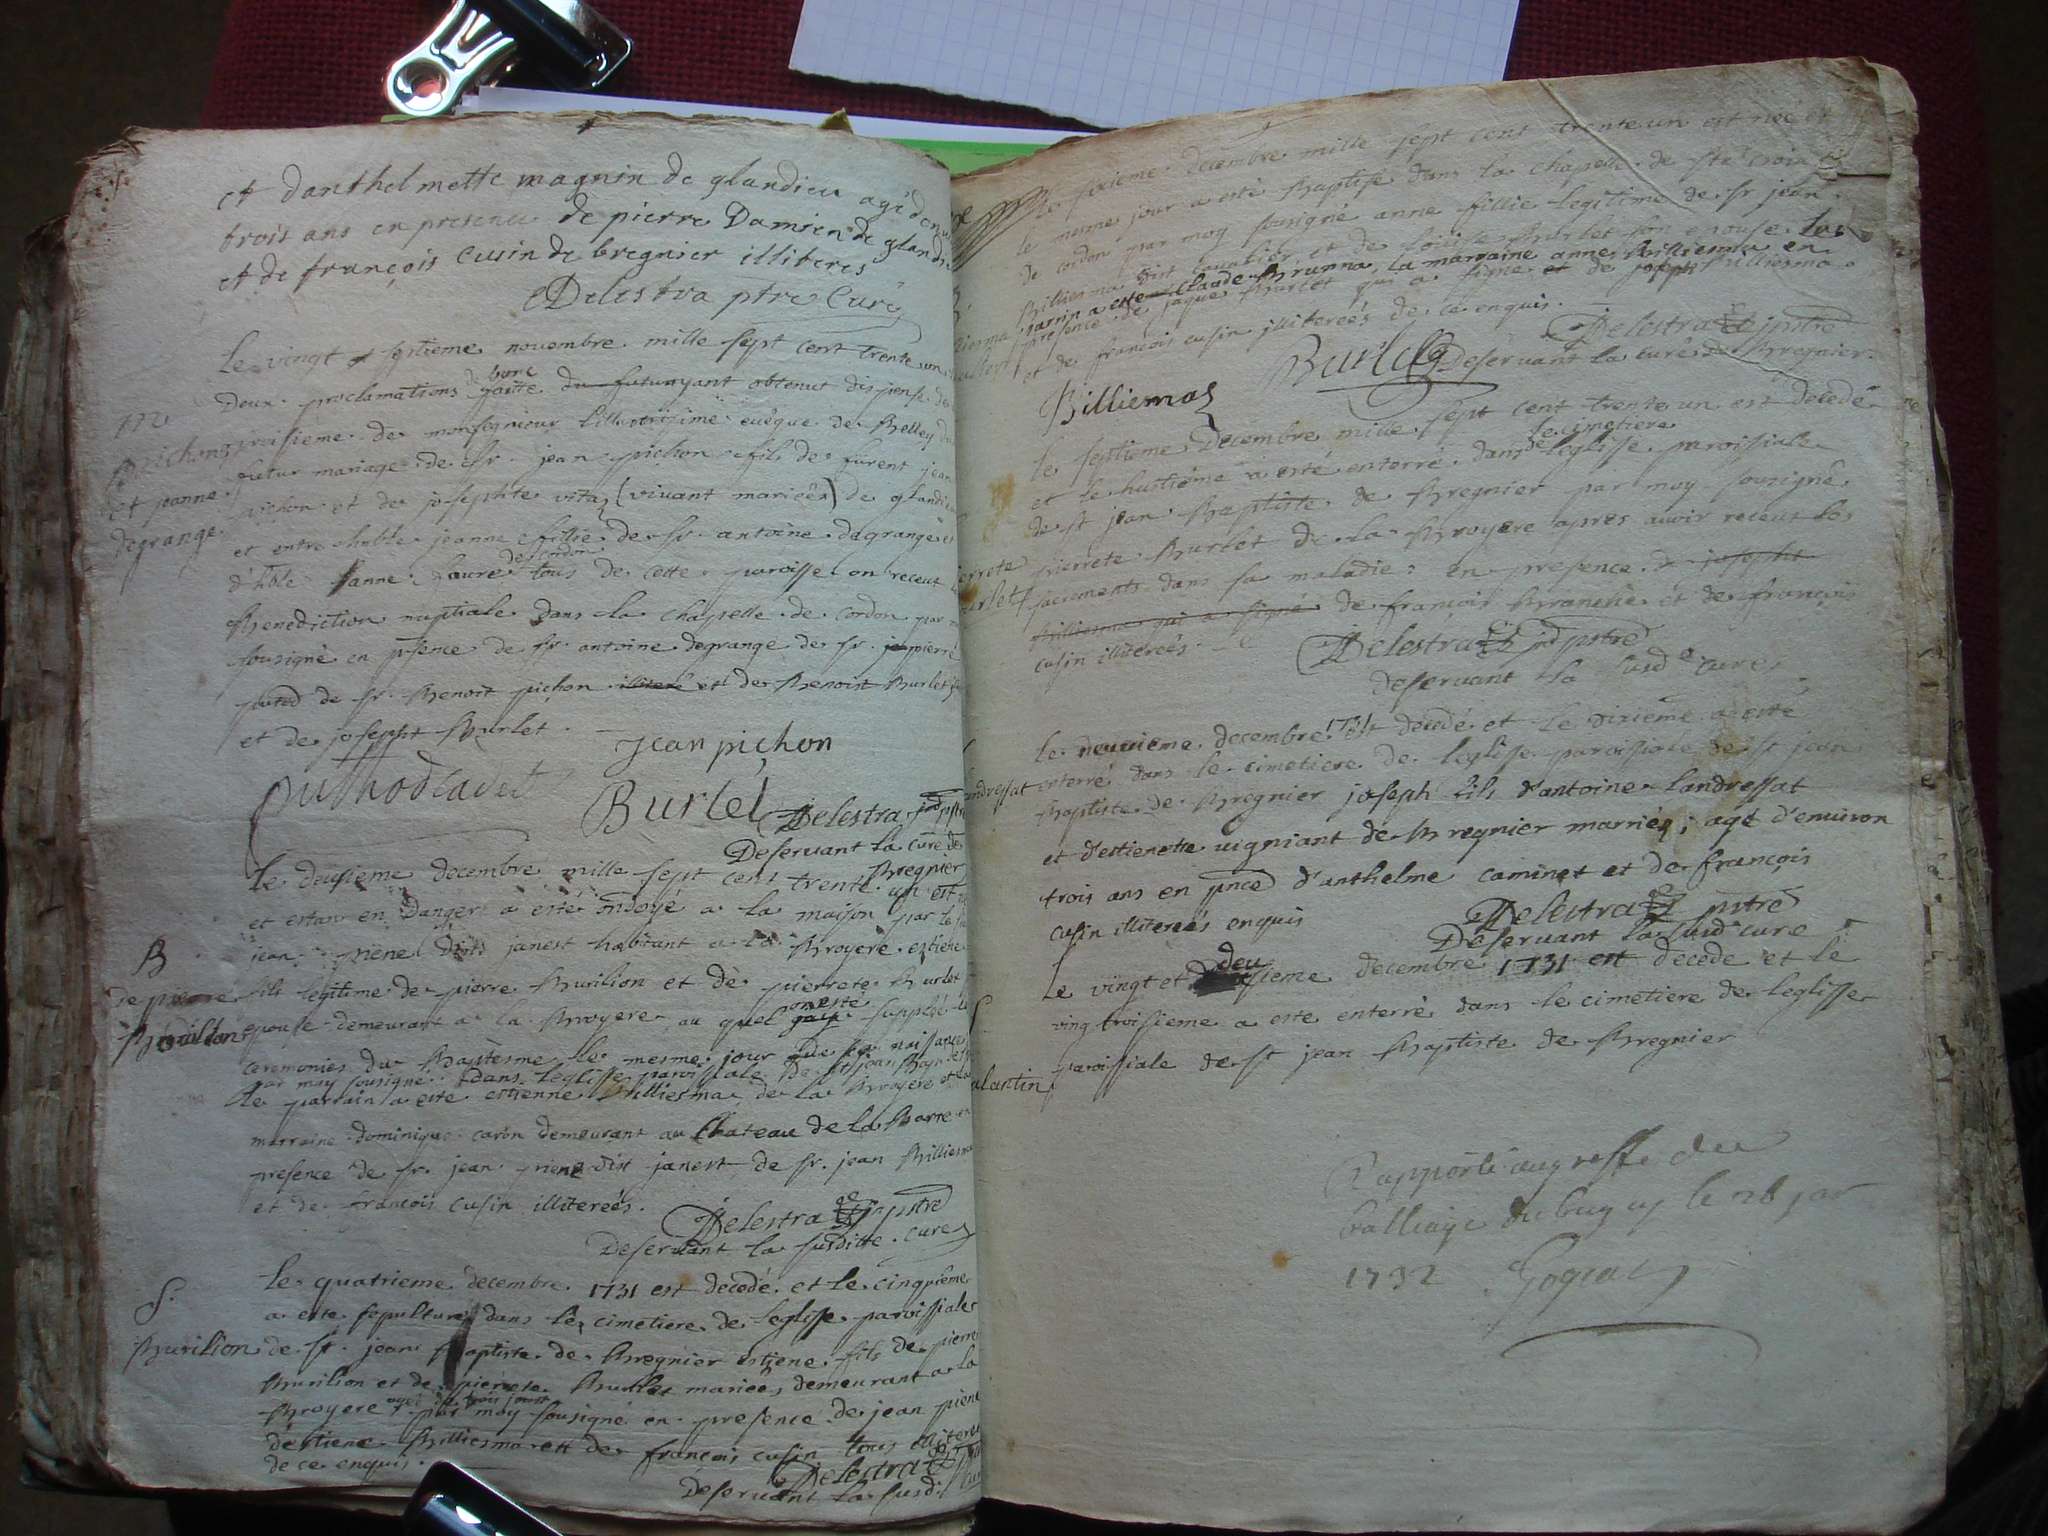 et danthelmette magnin de glandieu agé denv
trois ans en presence de pierre Damien de glandi
et de françois Cusin de bregnier illiteres
Delestra ptre Curé
Le vingt septieme novembre mille sept cent trente un
Deux proclamations faitte du futur ayant obtenut dispense de
bone
troisieme de monseigneur lillustrissime eveque de Belley du
futur mariage de Sr. jean pichon fils de furent jean
pichon et de josephte vita (vivant mariées) de glandi
et entre hble jeanne fillie de Sr. antoine degrange et
d'hble tous de cette paroisse on receut
de cordon
Benediction nuptiale dans la chapelle de cordon par
sousigné en psence de Sr. antoine degrange de Sr. pierre
de Sr. Benoit pichon illiteré et de Benoist Burlet
et de joseph Burlet.
M
pichon
et jeanne
degrange
jean pichon
Burlet
Delestra
Deservant la cure de
Bregnier
Le deusieme decembre mille sept cent trente un est
et estan en danger a esté ondoyé a la maison par le
jean piene dit janest habitant a la Broyere estiene
fils legitime de pierre Burilion et de pierrete Burlet
epouse demeurant a la Broyere au quel suppléé
on esté
ceremonies du Baptesme le mesme jour de sa naissance
par moy sousigné dans leglisse paroissiale de st jean Bap
le parrain a este estienne Billiesma de la Broyere et la
marraine dominique caron demeurant au Chateau de la Barre
presence de Sr. jean piene dit janest de Sr. jean Billiesma
et de francois cusin illitereés.
B
de pierre
Delestra pstre
Deservant la susditte cure
Le quatrieme decembre 1731 est decedé et le cinquième
a este sepulturé dans le cimetiere de leglisse paroissiale
de St. jean Baptiste de Bregnier estiene fils de pierre
Burilion et de pierrete Burlet mariées demeurant a la
Broyere par moy sousigné en presence de jean piene
agé de trois jours
d'estiene Billiesma et de francois cusin tous illiteres
de ce enquis.
S.
Burilion
Delestra
Deservant la susdi
Le sixieme decembre mille sept cent trente un est neé et
le mesme jour a esté Baptisé dans la chapelle de ste croix
de cordon par moy sousigné anne fillie legitime de Sr jean
Billiesma et de loüise Burlet son epouse
parrin a este Claude Brunna, la marraine anne Billiesma en
presence de jaque Burlet qui a signe et de joseph Billiesma
et de francois cusin illitereés de ce enquis.
Billiemaz
Burlet
Delestra pstre
Deservant la cure de Bregnier
Le septieme Decembre mille sept cent trente un est decedé
et le huitième a esté enterré dans leglisse paroissiale
le cimetiere
de
de st jean Baptiste de Bregnier par moy sousigné
pierrete Burlet de la Broyere apres avoir receut les
sacrements dans sa maladie en presence de joseph
Billiesma qui a signé de francois Branche et de francois
cusin illitereés.
Delestra pstre
deservant la susde cure
Le neuvieme decembre 1731 est decedé et le dixieme a este
enterré dans le cimetiere de leglisse paroissiale de st jean
Baptiste de Bregnier joseph fils d'antoine landressat
et d'estienette vigniant de Bregnier marriés, agé d'environ
trois ans en pnce d'anthelme caminet et de françois
cusin illitereés enquis
Delestra pstre
Deservant la susd cure
Le vingt et deusieme decembre 1731 est decede et le
ving troisieme a este enterré dans le cimetiere de leglisse
paroissiale de st jean Baptiste de Bregnier
Rapporté au greffe du
balliage du bugey le 28 jar
1732